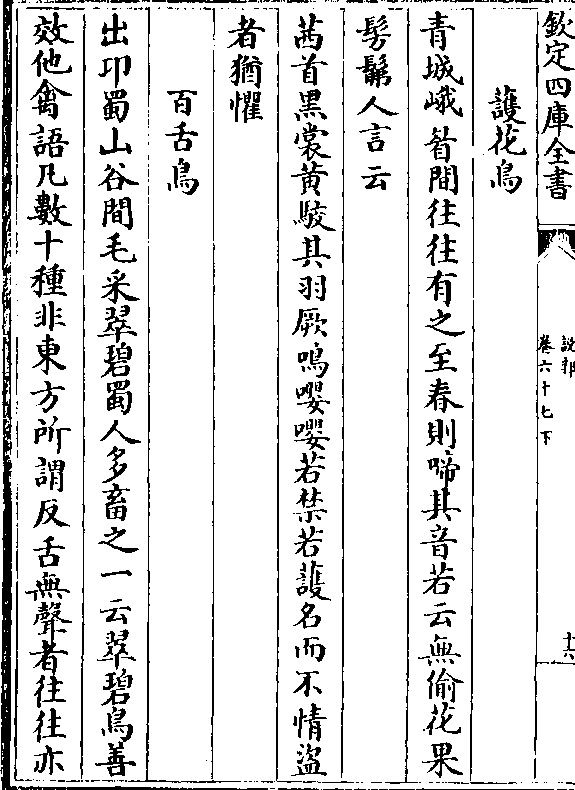 欽定四庫全書
說郛
卷六十七下
十六
護花鳥
青城峨眉間往往有之至春則啼其音若云無偷花果
髣髴人言云
茜首黑裳黄駮其羽厥鳴嚶嚶若禁若護名而不情盜
者猶懼
百舌鳥
出卭蜀山谷間毛采翠碧蜀人多畜之一云翠碧鳥善
效他禽語凡數十種非東方所謂反舌無聲者往往亦